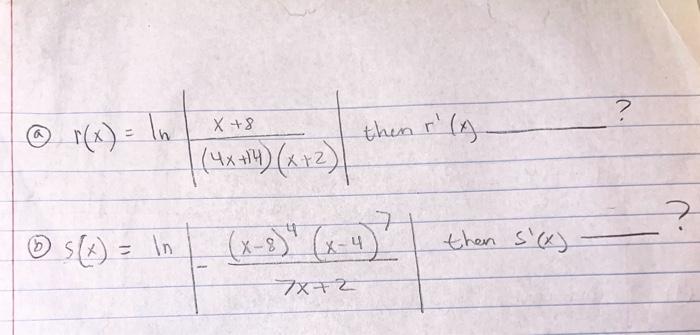 ⓐ r(x) = ln | x+8 / (4x+14)(x+2) | then r'(x) ______ ?
ⓑ s(x) = ln | - (x-8)⁴ (x-4)⁷ / 7x+2 | then s'(x) ______ ?